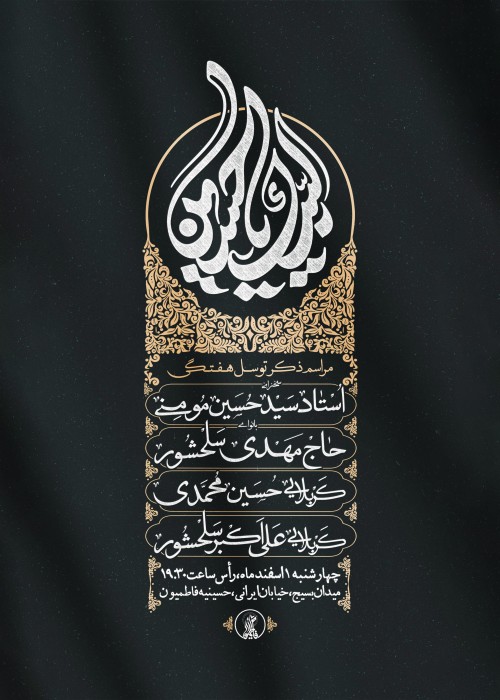 لبیک یا حسین
مراسم ذکر توسل هفتگی
سخنران
استاد سید حسین مومنی
بانوای
حاج مهدی سلحشور
کربلایی حسین محمدی
کربلایی علی اکبر سلحشور
چهارشنبه ۱ اسفندماه، رأس ساعت ۱۹:۳۰
میدان بسیج، خیابان ایرانی، حسینیه فاطمیون